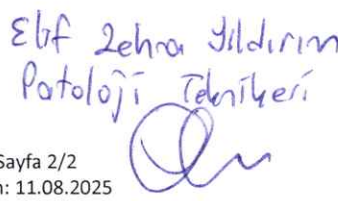 Elif Zehra Yıldırım
Patoloji Teknikeri
Sayfa 2/2
: 11.08.2025